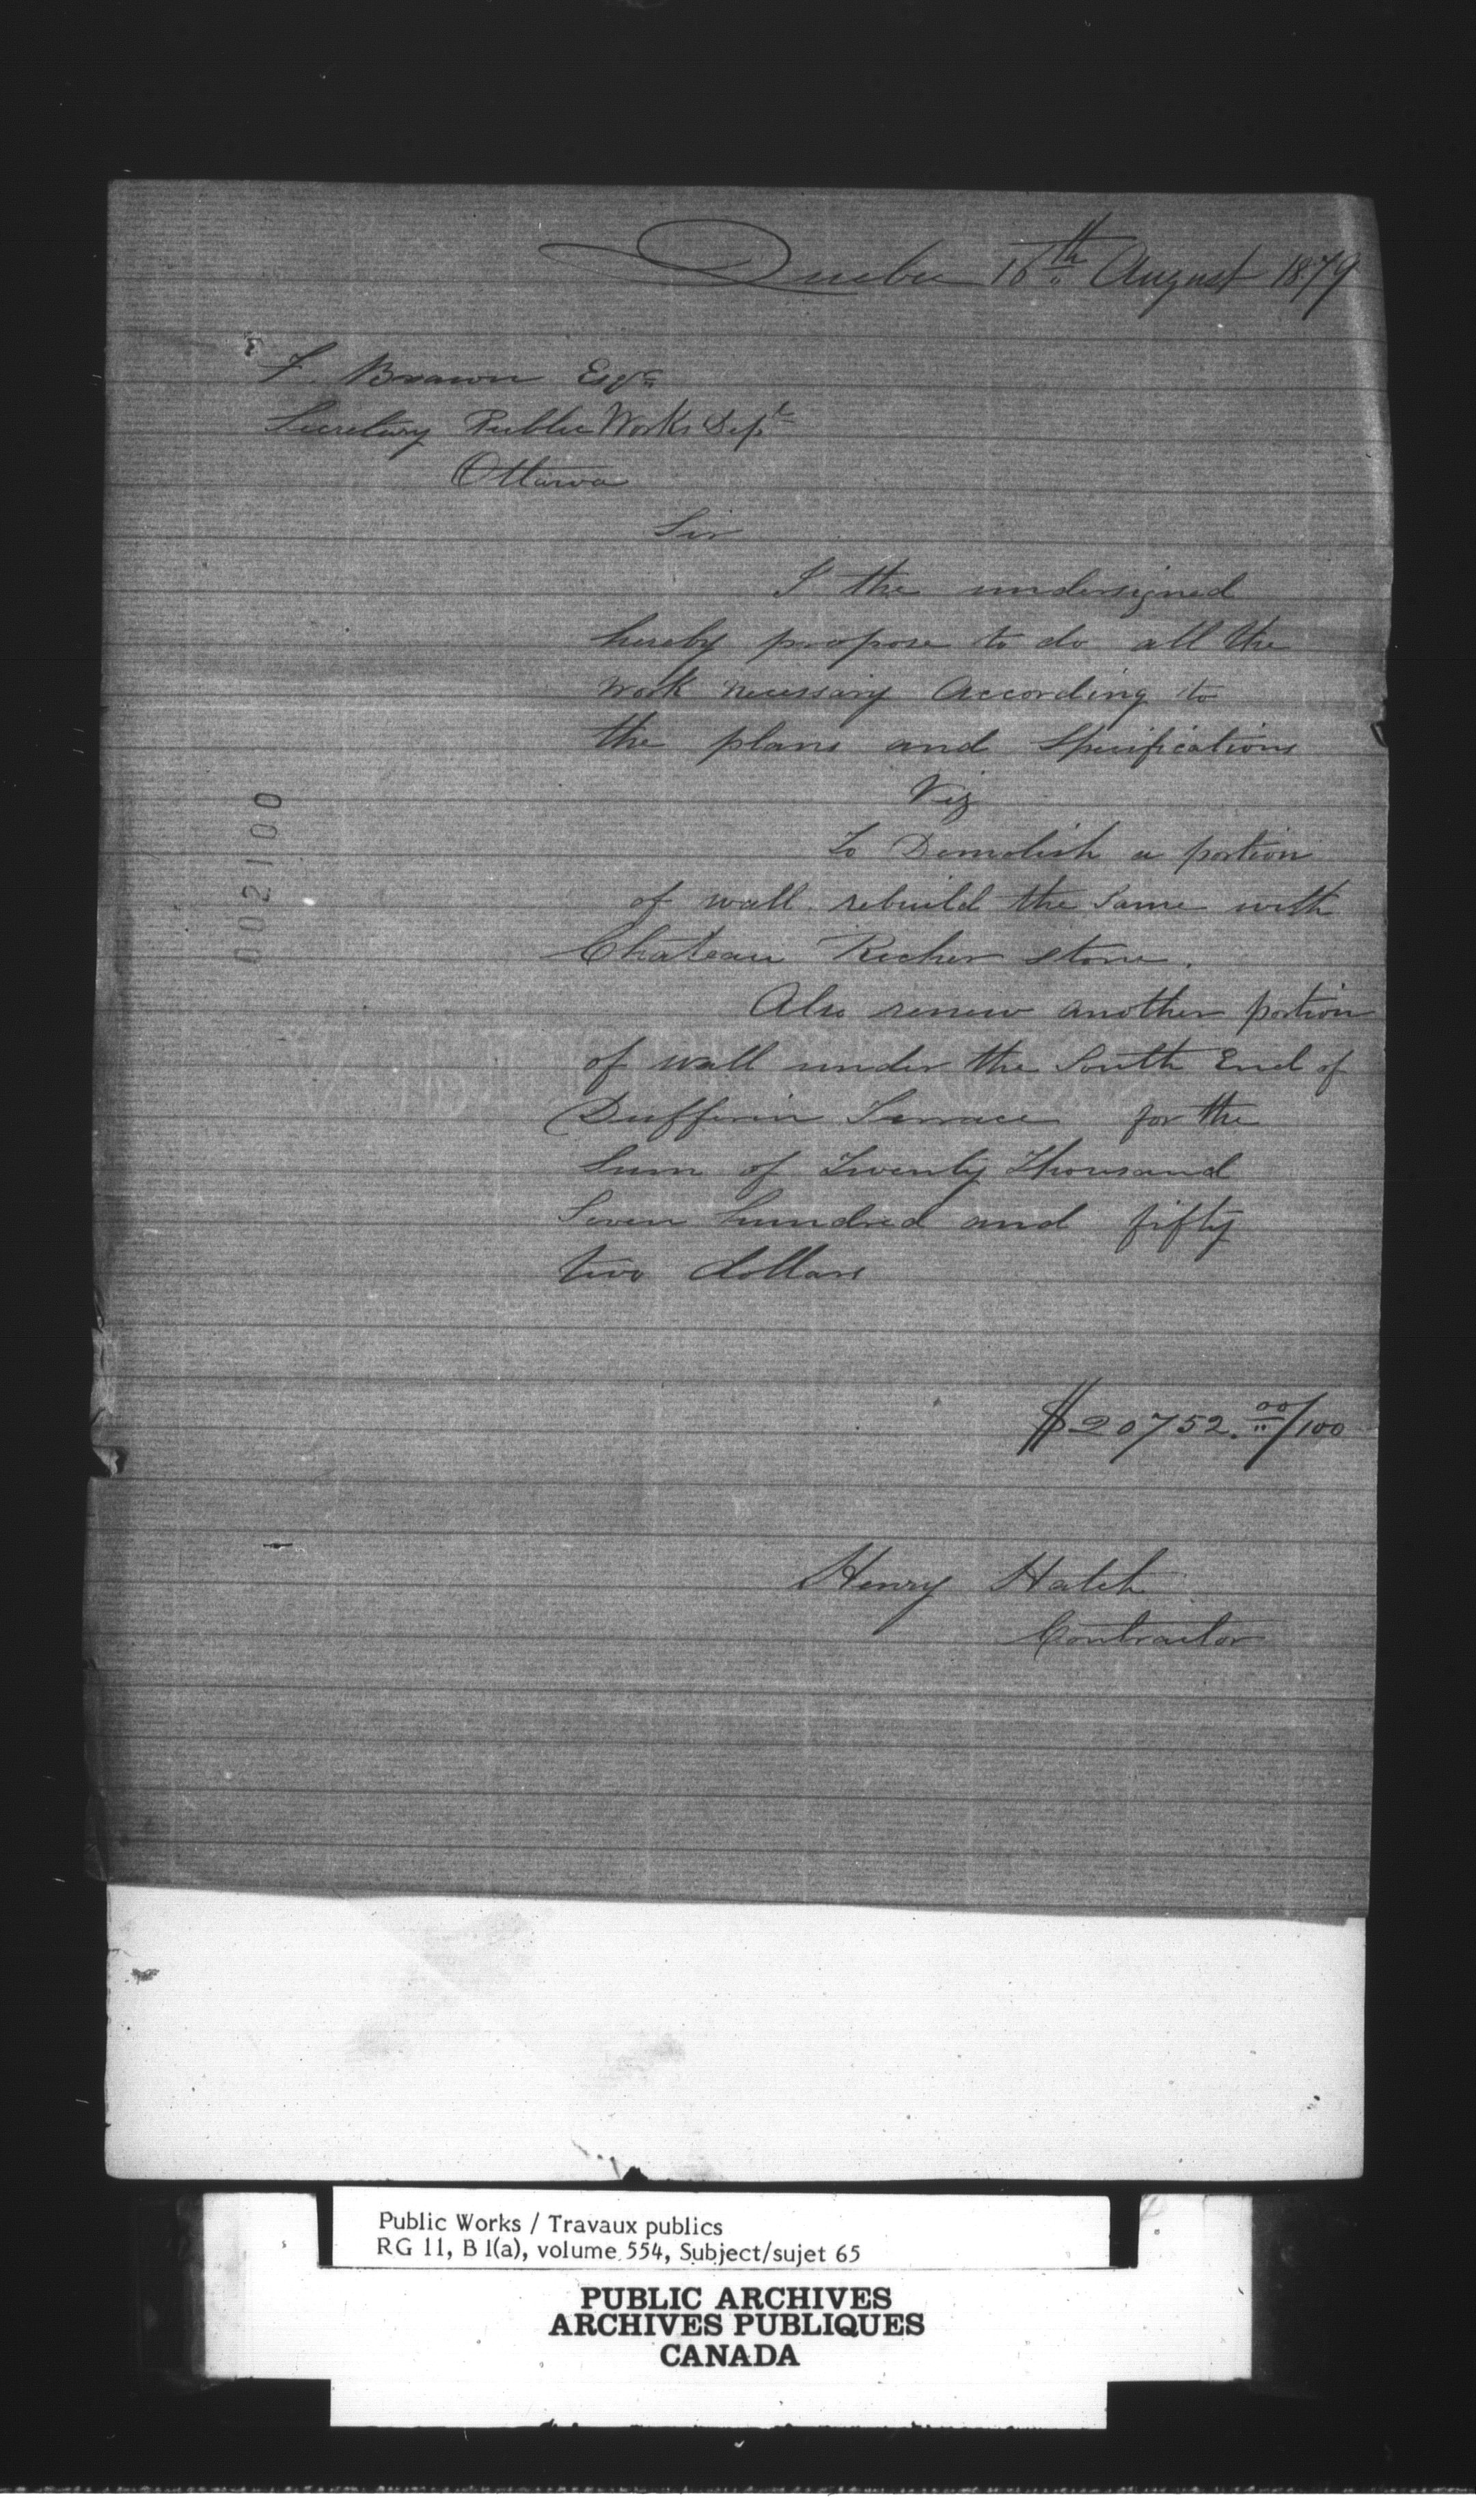 Quebec 16th August 1879
F. Braun Esqr
Secretary Public Works Dept
Ottawa
Sir
I the undersigned
hereby propose to do all the
work necessary According to
the plans and Specifications
Viz
To Demolish a portion
of wall rebuild the Same with
Chateau Richer stone.
Also renew another portion
of wall under the South End of
Dufferin Terrace for the
Sum of Twenty Thousand
Seven hundred and fifty
two dollars
$20752.00/100
Henry Hatch
Contractor
002100
Public Works / Travaux publics
RG 11, B 1(a), volume 554, Subject/sujet 65
PUBLIC ARCHIVES
ARCHIVES PUBLIQUES
CANADA